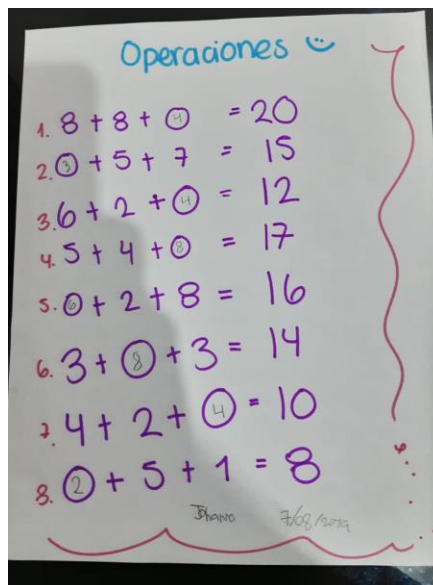 Operaciones
1. 8 + 8 + 4 = 20
2. 3 + 5 + 7 = 15
3. 6 + 2 + 4 = 12
4. 5 + 4 + 8 = 17
5. 6 + 2 + 8 = 16
6. 3 + 8 + 3 = 14
7. 4 + 2 + 4 = 10
8. 2 + 5 + 1 = 8
Johana 7/08/2019